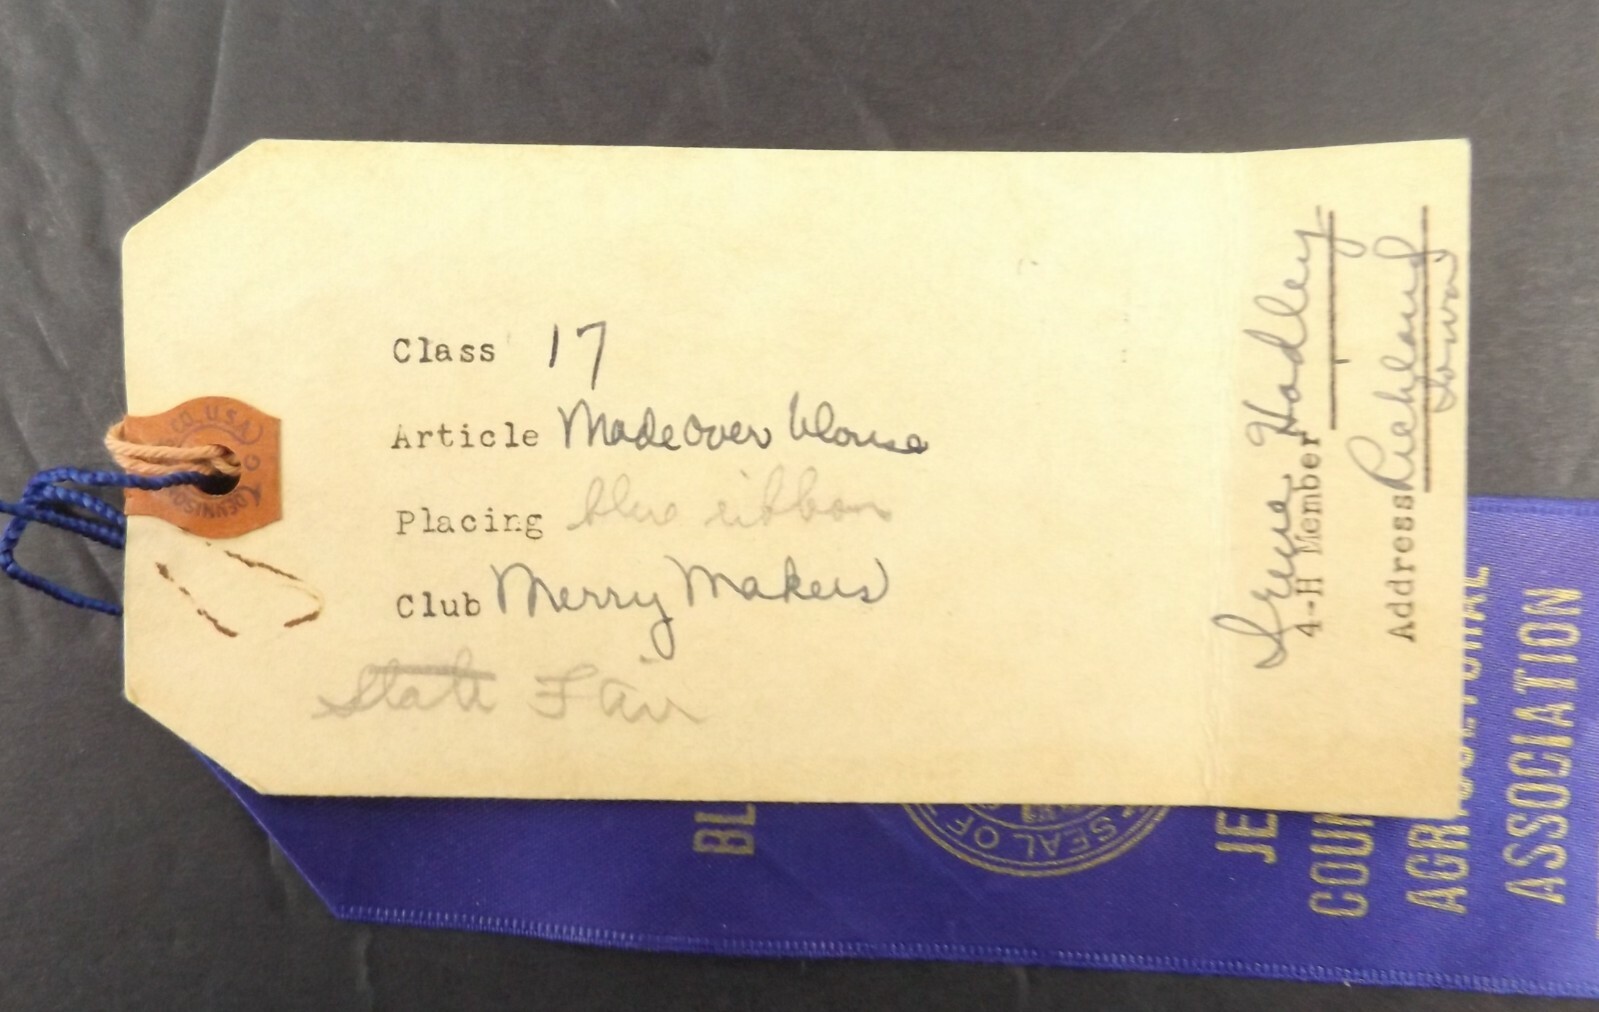 Class 17
Article Made over blouse
Placing blue ribbon
Club Merry Makers
State Fair
Irene Hadley
4-H Member
Address Richland
Iowa
CO. U.S.A.
DENNISON
SEAL OF
COUN
ASSOCIATION